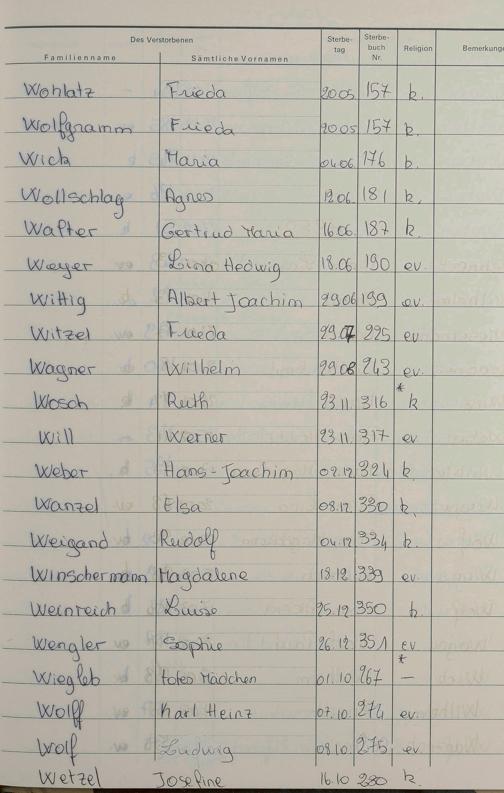 Des Verstorbenen Sterbe- Sterbe-
tag buch Religion Bemerkunge
Familienname Sämtliche Vornamen Nr.
Wohlatz Frieda 20.05 157 k.
Wolfgramm Frieda 20.05 157 k.
Wick Maria 04.06 176 k.
Wollschlag Agnes 12.06. 181 k.
Walter Gertrud Maria 16.06. 187 k.
Weyer Lina Hedwig 18.06 190 ev.
Wittig Albert Joachim 29.06 199 ev.
Witzel Frieda 29.07 225 ev.
Wagner Wilhelm 29.08 243 ev.
Wosch Ruth 23.11. 316 * k
Will Werner 23.11. 317 ev
Weber Hans-Joachim 02.12. 324 k.
Wanzel Elsa 08.12. 330 k.
Weigand Rudolf 04.12 334 k.
Winschermann Magdalene 18.12. 339 ev.
Weinreich Luise 25.12. 350 k.
Wengler Sophie 26.12. 351 ev
Wiegleb totes Mädchen 01.10. 267 * —
Wolff Karl Heinz 07.10. 274 ev.
Wolf Ludwig 08.10. 275 ev.
Wetzel Josefine 16.10 280 k.